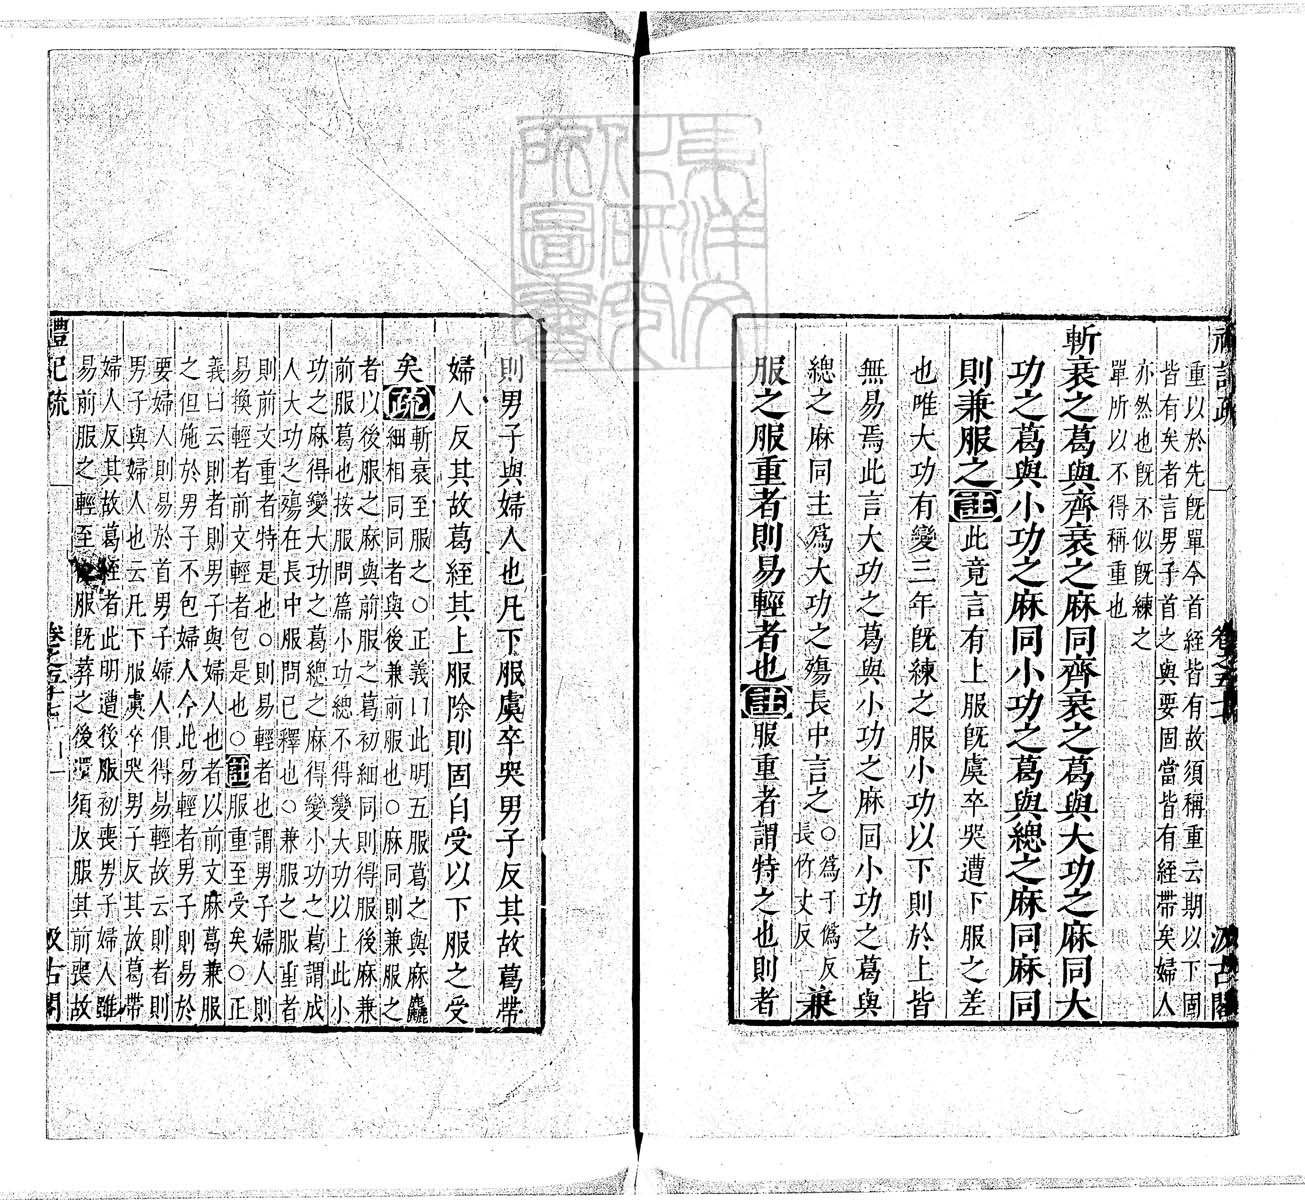 重以於先旣單今首絰皆有故須稱重云期以下固
皆有矣者言男子首之與要固當皆有絰帶矣婦人
亦然也旣不似旣練之
單所以不得稱重也
斬衰之葛與齊衰之麻同齊衰之葛與大功之麻同大
功之葛與小功之麻同小功之葛與緦之麻同麻同
則兼服之註此竟言有上服旣虞卒哭遭下服之差
也唯大功有變三年旣練之服小功以下則於上皆
無易焉此言大功之葛與小功之麻同小功之葛與
緦之麻同主爲大功之殤長中言之○爲于僞反長竹丈反兼
服之服重者則易輕者也註服重者謂特之也則者
則男子與婦人也凡下服虞卒哭男子反其故葛帶
婦人反其故葛絰其上服除則固自受以下服之受
矣疏斬衰至服之○正義曰此明五服葛之與麻麤
細相同同者與後兼前服也○麻同則兼服之
者以後服之麻與前服之葛初細同則得服後麻兼
前服葛也按服問篇小功緦不得變大功以上此小
功之麻得變大功之葛緦之麻得變小功之葛謂成
人大功之殤在長中服問已釋也○兼服之服重者
則前文重者特是也○則易輕者也謂男子婦人則
易換輕者前文輕者包是也○註服重至受矣○正
義曰云則者則男子與婦人也者以前文麻葛兼服
之但施於男子不包婦人今此易輕者男子則易於
要婦人則易於首男子婦人俱得易輕故云則者則
男子與婦人也云凡下服虞卒哭男子反其故葛帶
婦人反其故葛絰者此明遭後服初喪男子婦人雖
易前服之輕至服旣葬之後還須反服其前喪故
禮記疏
卷之五十七
汲古閣
東洋文化研究所圖書